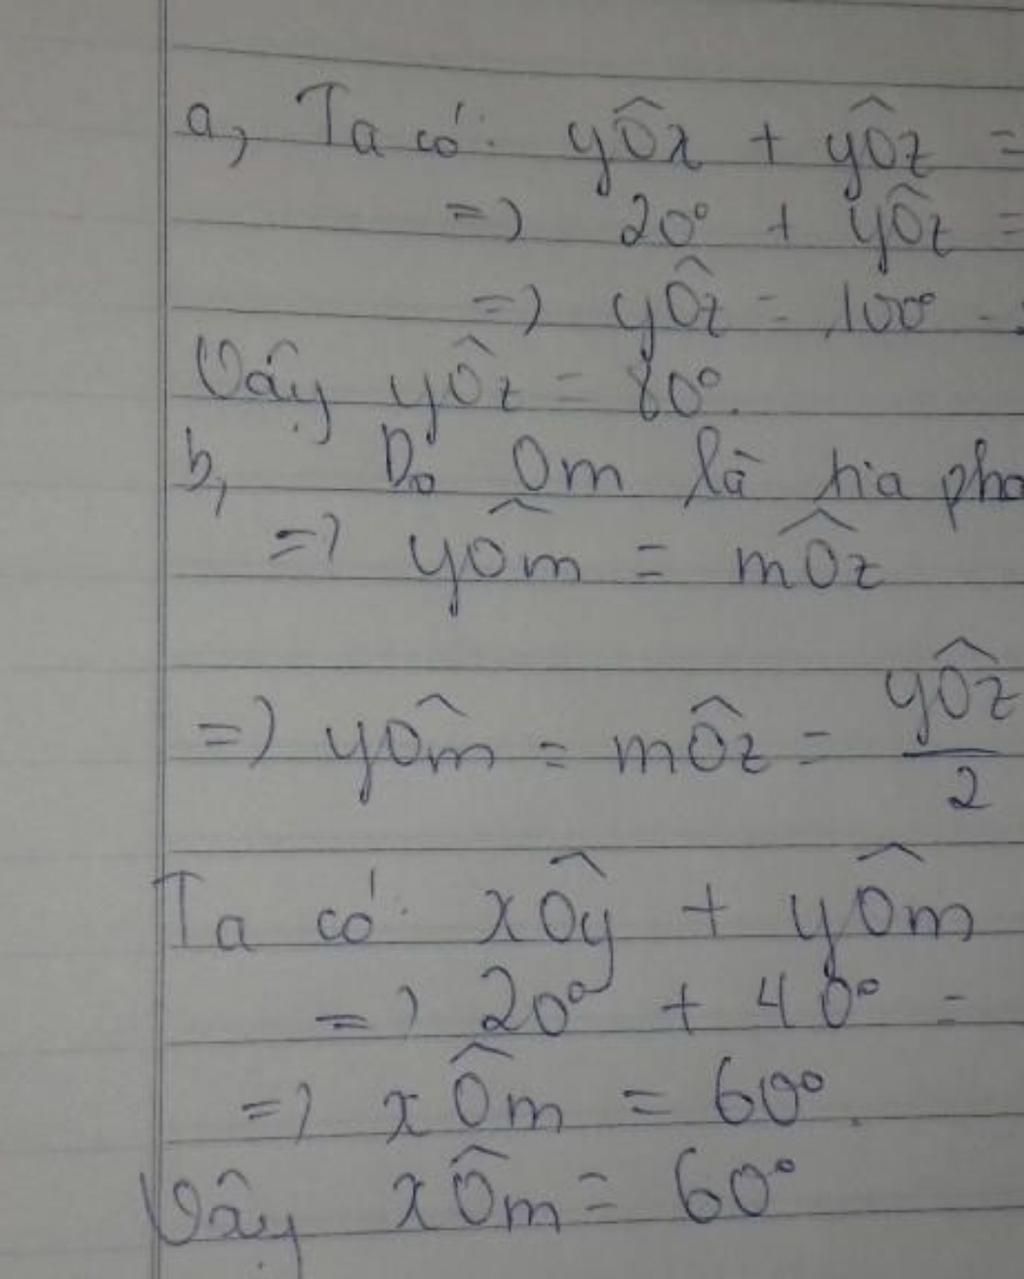 a, Ta có: yÔx + yÔz =
=> 20° + yÔz =
=> yÔz = 100° -
Vậy yÔz = 80°.
b, Do Om là tia phâ
=> yÔm = mÔz
=> yÔm = mÔz = yÔz/2
Ta có: xÔy + yÔm
=> 20° + 40° =
=> xÔm = 60°.
Vậy xÔm = 60°